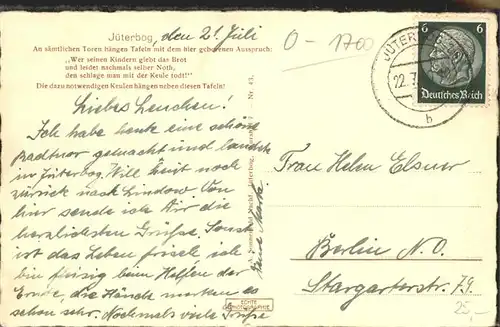 Jüterbog, den 21. Juli
An sämtlichen Toren hängen Tafeln mit dem hier gebotenen Ausspruch:
„Wer seinen Kindern giebt das Brot
und leidet nachmals selber Noth,
den schlage man mit der Keule todt!"
Die dazu notwendigen Keulen hängen neben diesen Tafeln!
Liebes Lenchen!
Ich habe heute eine schöne
Radtour gemacht und landete
in Jüterbog. Will heut noch
zurück nach Lindow. Von
hier sende ich Dir die
herzlichsten Grüße. Sonst
ist das Leben frisch, ich
bin fleißig beim Helfen der
Ernte, die Hände merken es
schon sehr. Nochmals viele Grüße
Deine
Nr. 43.
0-1700
JÜTERBOG
22.7.
b
6 6
Deutsches Reich
Frau Helen Elsner
Berlin N.O.
Stargarterstr. 79.
ECHTE
PHOTOGRAPHIE
25,-